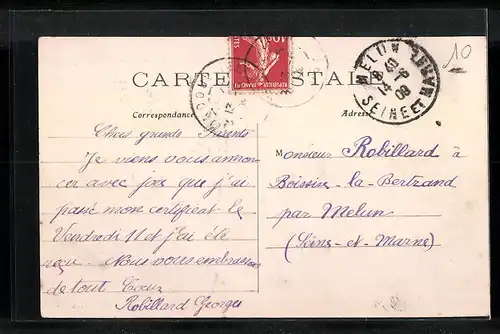 10
10c
POSTES
REPUBLIQUE FRANCAISE
MELUN
SEINE ET MARNE
CARTE POSTALE
Correspondance
Adresse
Chers grands Parents
Je viens vous annon-
cer avec joie que j'ai
passé mon certificat le
Vendredi 11 et j'ai été
reçu. Nous vous embrassons
de tout Cœur
Robillard Georges
Monsieur Robillard à
Boissise-la-Bertrand
par Melun
(Seine-et-Marne)